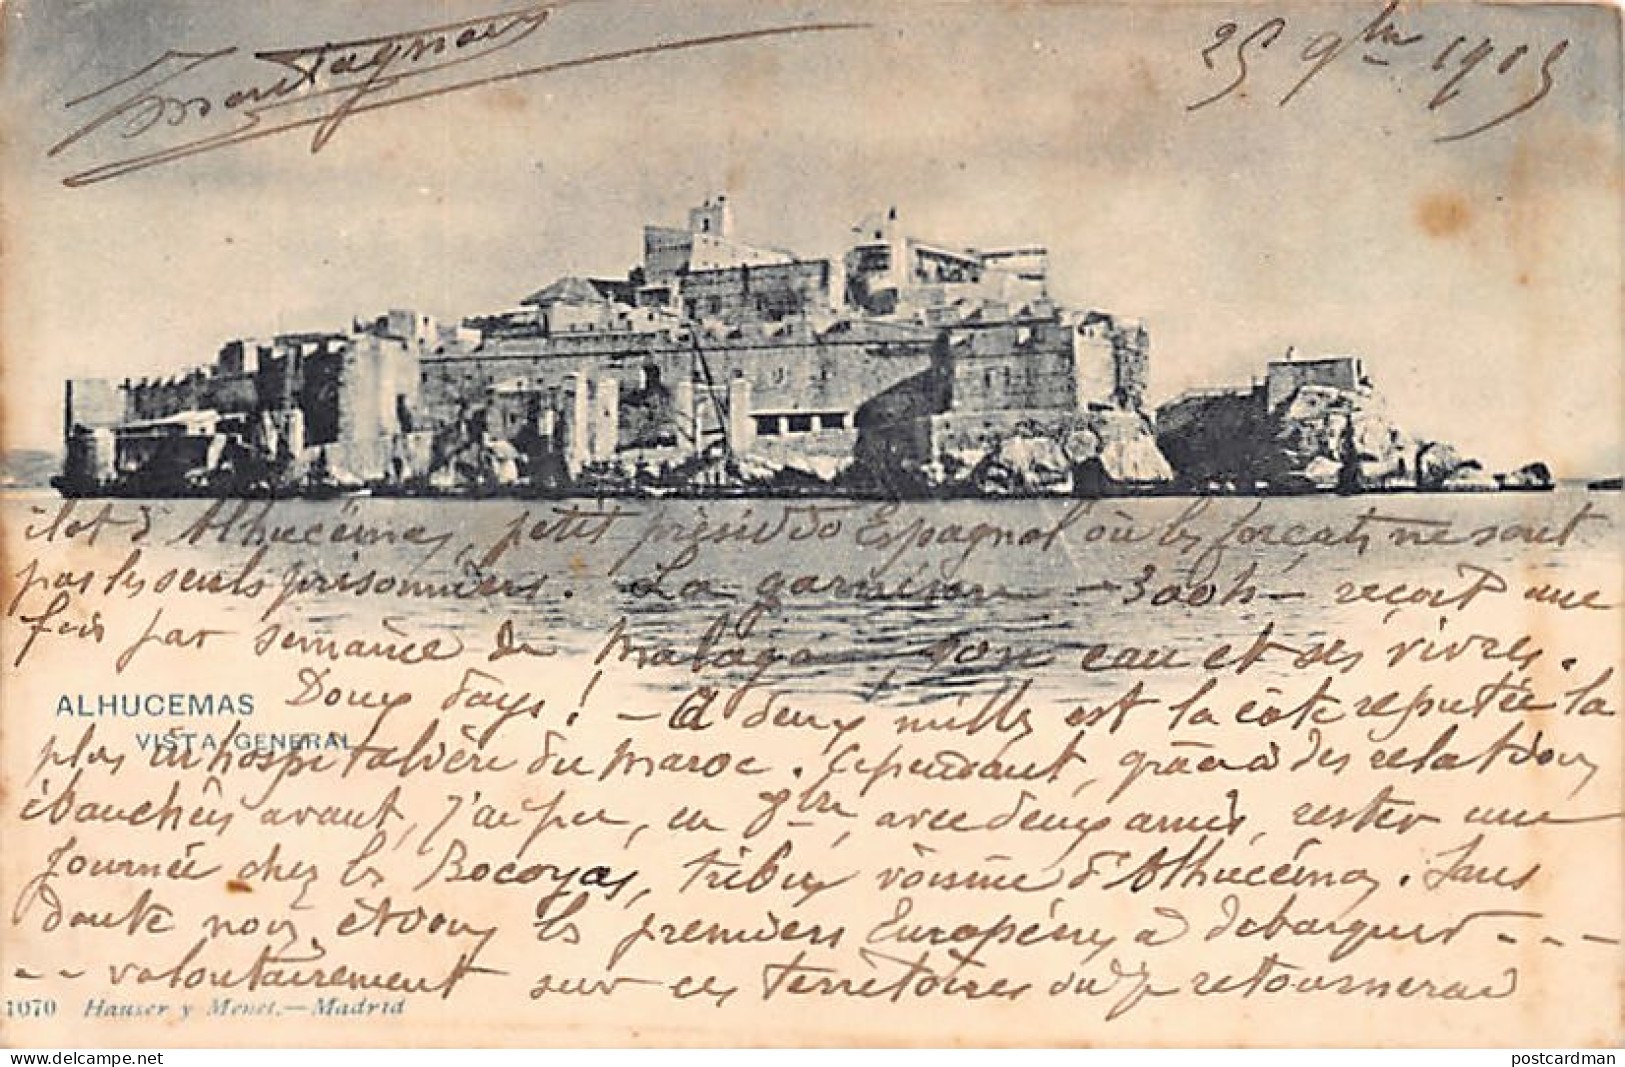 Montagnac
25 9bre 1905
îlot d'Alhucémas, petit présidio Espagnol où les forçats ne sont
pas les seuls prisonniers. La garnison - 300 h - reçoit une
fois par semaine de Malaga, son eau et ses vivres.
Doux pays! - A deux milles est la côte reputée la
ALHUCEMAS
VISTA GENERAL
plus inhospitalière du Maroc. Cependant, grâce à des relations
ébauchées avant, j'ai pu, en 8bre, avec deux amis, rester une
journée chez les Bocoyas, tribu voisine d'Alhucémas. Sans
doute nous étions les premiers Européens à debarquer - - -
- - volontairement sur ces territoires où je retournerai
1070 Hauser y Menet.—Madrid
www.delcampe.net
postcardman